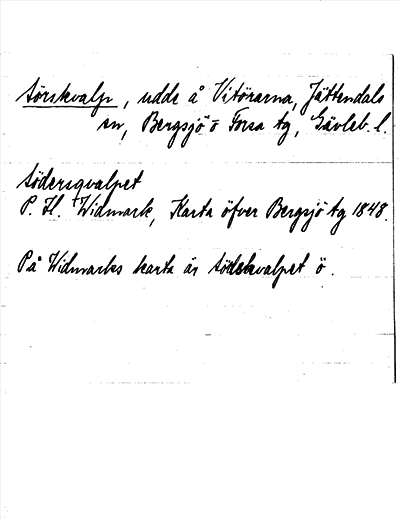 Sörskvalp, udde å Vitörarna, Jättendals
sn, Bergsjö o Forsa tg, Gävleb. l.
Södersqvalpet
P. H. Widmark, Karta öfver Bergsjö tg 1848.
På Widmarks karta är Södskvalpet ö.